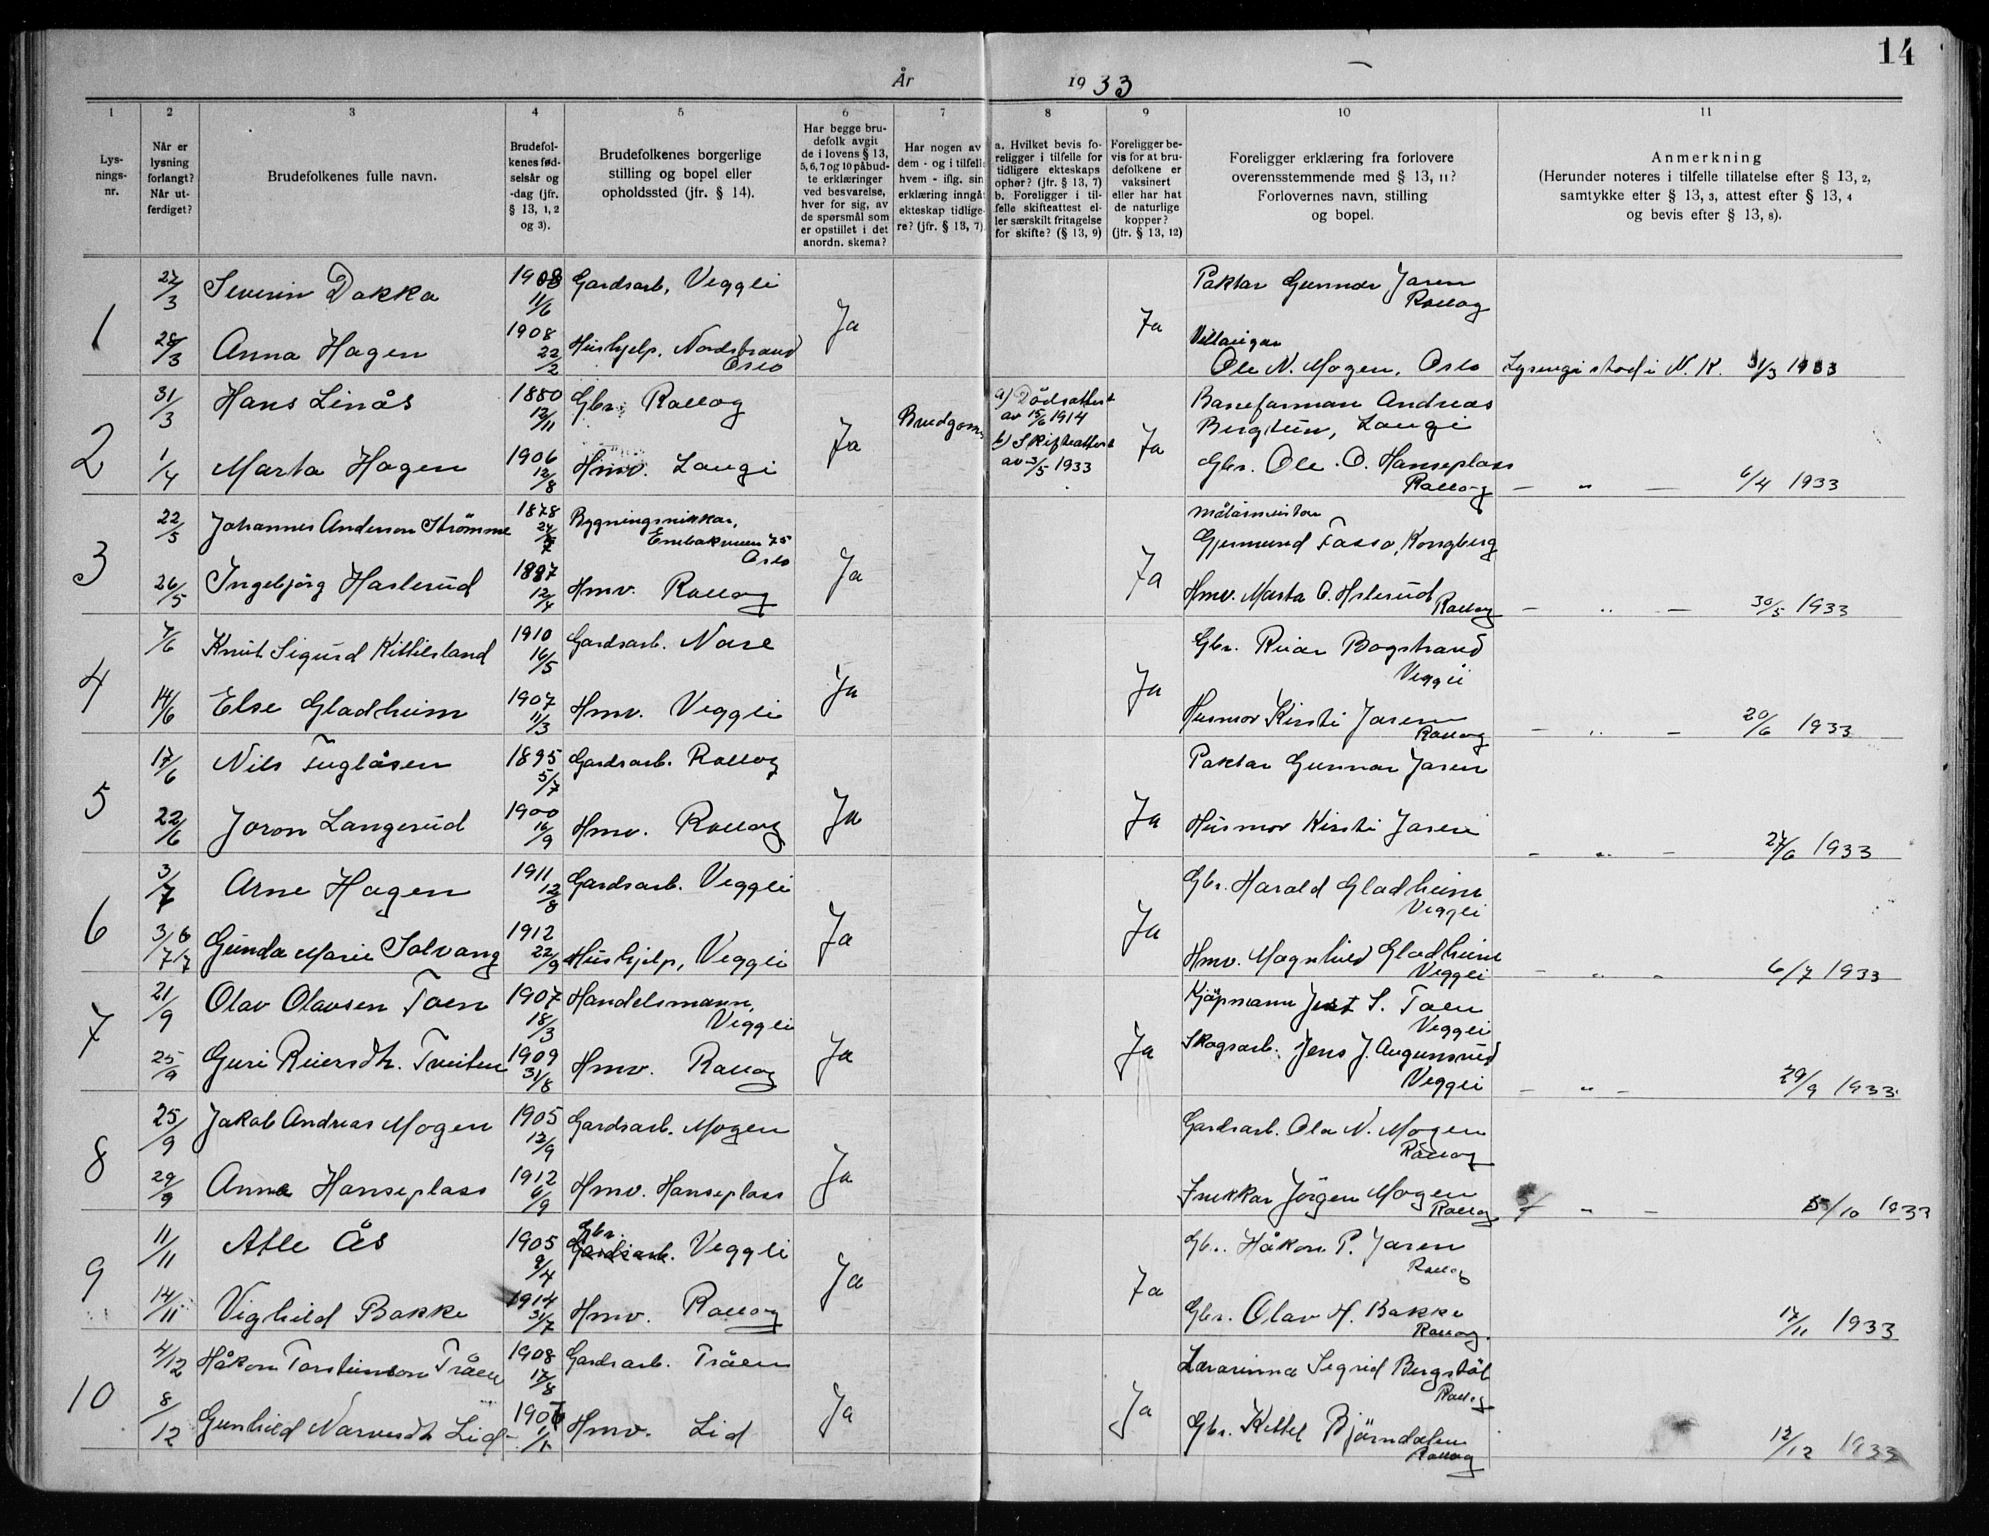 14
År 1933
1
2
3
4
5
6
7
8
9
10
11
Lys-
nings-
nr.
Når er
lysning
forlangt?
Når ut-
ferdiget?
Brudefolkenes fulle navn.
Brudefol-
kenes fød-
selsår og
-dag (jfr.
§ 13, 1, 2
og 3).
Brudefolkenes borgerlige
stilling og bopel eller
opholdssted (jfr. § 14).
Har begge bru-
defolk avgit
de i lovens § 13,
5, 6, 7 og 10 påbud-
te erklæringer
ved besvarelse,
hver for sig, av
de spørsmål som
er opstillet i det
anordn. skema?
Har nogen av
dem - og i tilfelle
hvem - iflg. sin
erklæring inngåt
ekteskap tidlige-
re? (jfr. § 13, 7).
a. Hvilket bevis fo-
religger i tilfelle for
tidligere ekteskaps
ophør? (jfr. § 13, 7)
b. Foreligger i til-
felle skifteattest el-
ler særskilt fritagelse
for skifte? (§ 13, 9)
Foreligger be-
vis for at bru-
defolkene er
vaksinert
eller har hat
de naturlige
kopper?
(jfr. § 13, 12)
Foreligger erklæring fra forlovere
overensstemmende med § 13, 11?
Forlovernes navn, stilling
og bopel.
Anmerkning
(Herunder noteres i tilfelle tillatelse efter § 13, 2,
samtykke efter § 13, 3, attest efter § 13, 4
og bevis efter § 13, 8).
1
27/3 Severin Dokka 1908 11/6 Gardsarb, Veggli
Ja Ja
Paktar Gunnar Jaren
Rollag
28/3 Anna Hagen 1908 22/2 Hushjelp, Nordstrand
Oslo
Ole N. Mogen, Oslo
Lysingi stod i N. K. 31/3 1933
2
31/3 Hans Linås 1880 12/11 Gbr, Rollag
Ja Brudgom
a) Dødsattest
av 15/6 1914
b) Skifteattest
av 3/5 1933
Ja
Baneforman Andreas
Bergtun, Laugi
1/4 Marta Hagen 1906 12/8 Hmv. Laugi
Gbr. Ole O. Hanseplass
Rollag
— " — 6/4 1933
3
22/5 Johannes Anderson Strømme 1878 Bygningsnikkar,
75
Oslo
Ja Ja
Målarmeistar
Gjermund Fasso, Kongberg
26/5 Ingebjørg Haslerud 1887 12/4 Hmv. Rollag
Hmv. Marta O. Hslerud Rollag
— " — 30/5 1933
4
7/6 Knut Sigurd Kittilsland 1910 16/5 Gardsarb. Nore
Ja Ja
Gbr. Reiar Bogstrand
Veggli
14/6 Else Gladheim 1907 11/3 Hmv. Veggli
Husmor Kirsti Jaren
Rollag
— " — 20/6 1933
5
17/6 Nils Fuglåsen 1895 5/7 Gardsarb. Rollag
Ja Ja
Paktar Gunnar Jaren
22/6 Joron Langerud 1900 16/9 Hmv. Rollag
Husmor Kirsti Jaren
— " — 27/6 1933
6
3/7 Arne Hagen 1911 12/8 Gardsarb. Veggli
Ja Ja
Gbr. Harald Gladheim
Veggli
3/7 6/7 Gunda Marie Solvang 1912 22/9 Hushjelp, Veggli
Hmv. Magnhild Gladheim
Veggli
— " — 6/7 1933
7
21/9 Olav Olavsen Toen 1907 18/3 Handelsmann,
Veggli
Ja Ja
Kjøpmann Just S. Toen
Veggli
25/9 Guri Reiersdtr. Tveiten 1909 31/8 Hmv. Rollag
Skogsarb. Jens J. Augunsrud
Veggli
— " — 29/9 1933
8
25/9 Jakob Andreas Mogen 1905 12/9 Gardsarb. Mogen
Ja
Gardsarb. Ola N. Mogen
Rollag
29/9 Anna Hanseplass 1912 6/9 Hmv. Hanseplass
Snikkar Jørgen Mogen
Rollag
" — 5/10 1933
9
11/11 Atle Ås 1905 9/4 Gbr.
Gardsarb. Veggli
Ja Ja
Gbr. Håkon P. Jaren
Rollag
14/11 Vighild Bakke 1914 31/7 Hmv. Rollag
Gbr. Olav H. Bakke
Rollag.
17/11 1933
10
4/12 Håkon Torsteinson Tråen 1908 17/8 Gardsarb. Tråen
Ja Ja
Lærarinna Sigrid Bergstøl
Rollag
8/12 Gunhild Narvesdtr Lid 1906 1/1 Hmv. Lid
Gbr. Kittel Bjørndalen
Rollag
12/12 1933